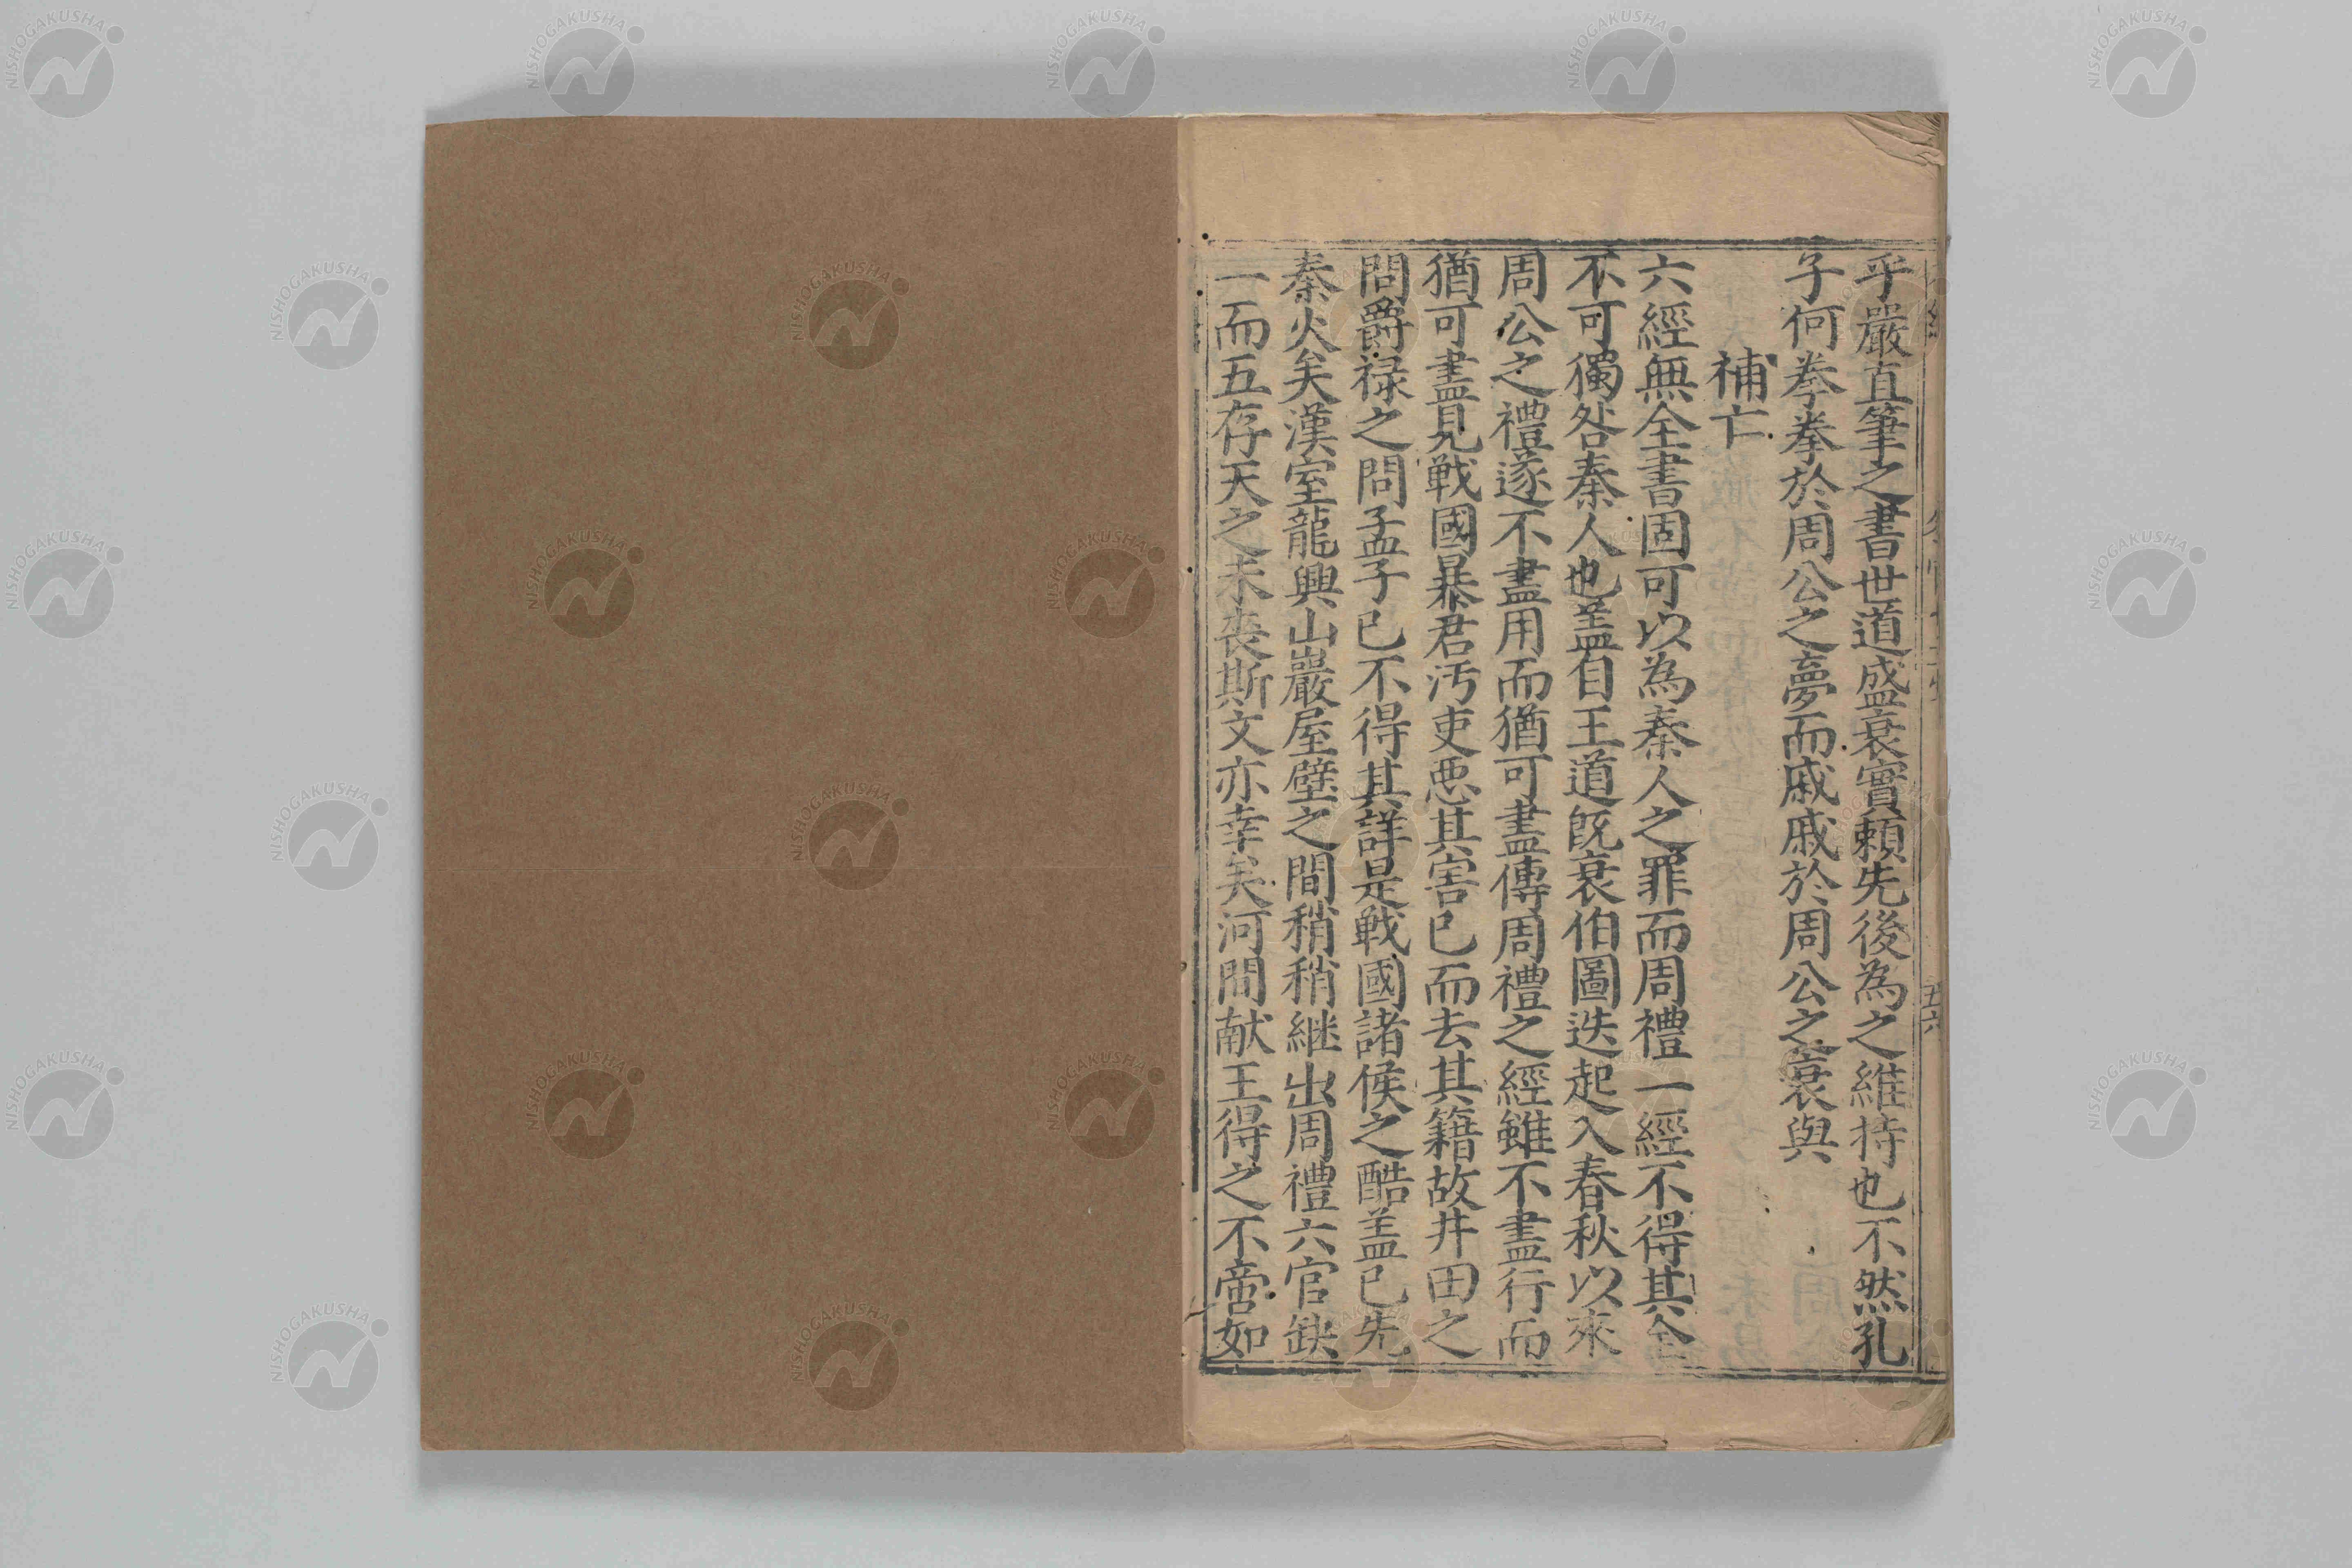 乎嚴直筆之書世道盛衰實賴先後為之維持也不然孔
子何拳拳於周公之夢而戚戚於周公之衰與
補亡
六經無全書固可以為秦人之罪而周禮一經不得其全
不可獨咎秦人也盖自王道既衰伯圖迭起入春秋以來
周公之禮遂不盡用而猶可盡傳周禮之經雖不盡行而
猶可盡見戰國暴君汚吏惡其害已而去其籍故井田之
問爵禄之問孟子已不得其詳是戰國諸侯之酷盖已先
秦火矣漢室龍興山巖屋壁之間稍稍継出周禮六官缺
一而五存天之未喪斯文亦幸矣河間献王得之不啻如
五六
NISHOGAKUSHA